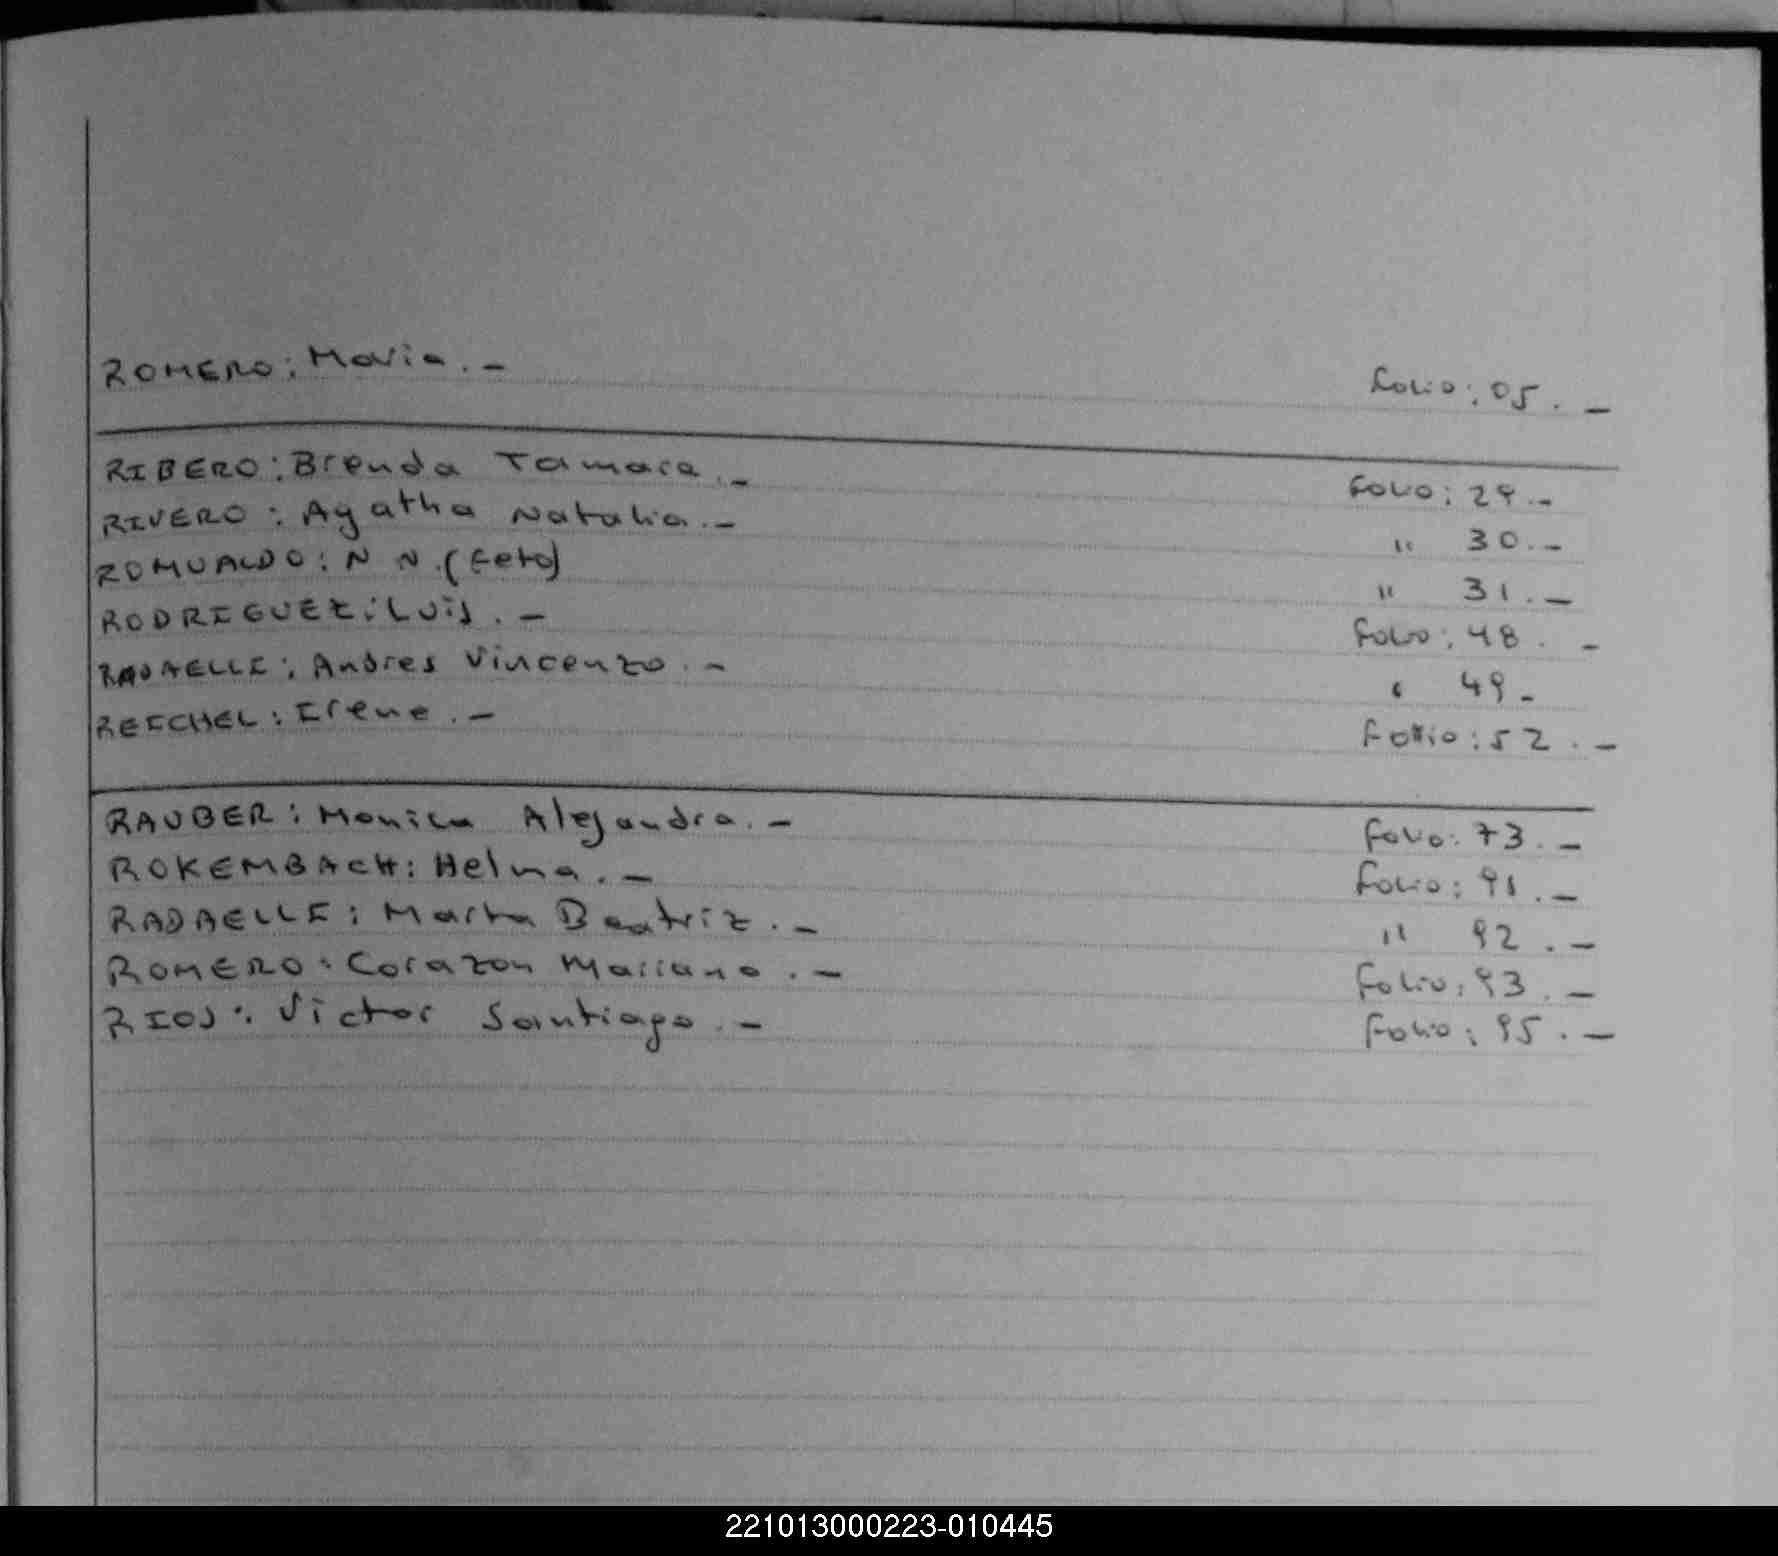 ROMERO: Maria.- Folio: 05.-
RIBERO: Brenda Tamara.- Folio: 29.-
RIVERO: Agatha Natalia.- " 30.-
ROMUALDO: N N.(Feto) " 31.-
RODRIGUEZ: Luis.- Folio: 48.-
RADAELLI: Andres Vincenzo.- " 49-
REICHEL: Irene.- Folio: 52.-
RAUBER: Monica Alejandra.- Folio: 73.-
ROKEMBACH: Helma.- Folio: 91.-
RADAELLI: Marta Beatriz.- " 92.-
ROMERO: Corazon Mariano.- Folio: 93.-
RIOS: Victor Santiago.- Folio: 95.-
221013000223-010445